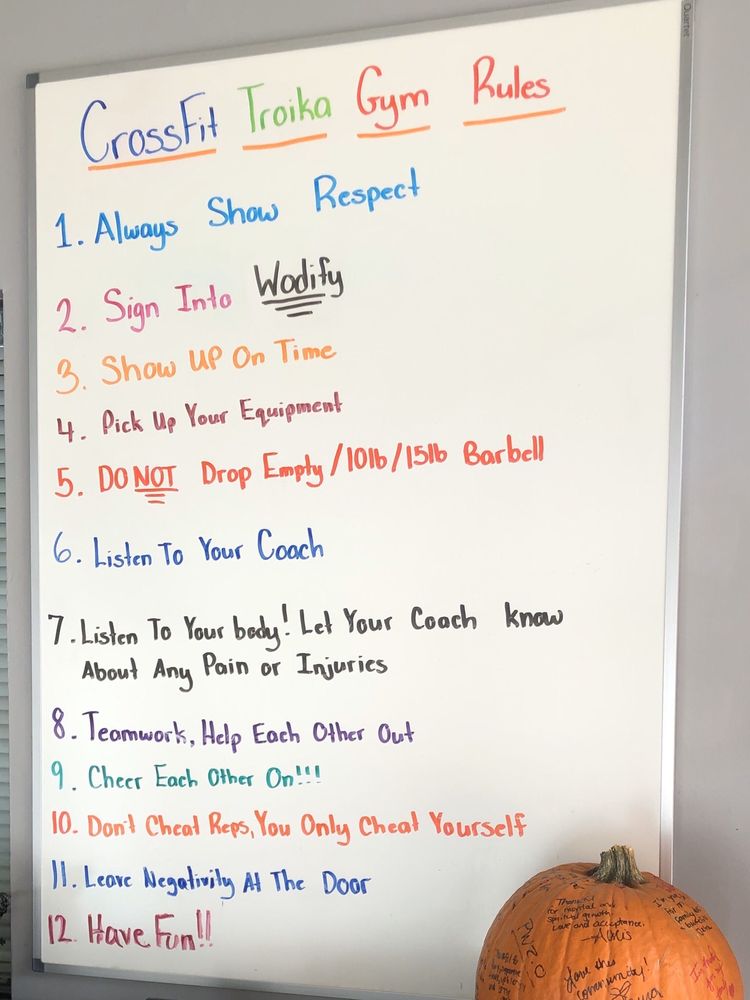 Quartet
CrossFit Troika Gym Rules
1. Always Show Respect
2. Sign Into Wodify
3. Show UP On Time
4. Pick Up Your Equipment
5. DO NOT Drop Empty/10lb/15lb Barbell
6. Listen To Your Coach
7. Listen To Your body! Let Your Coach know
About Any Pain or Injuries
8. Teamwork, Help Each Other Out
9. Cheer Each Other On!!!
10. Don't Cheat Reps, You Only Cheat Yourself
11. Leave Negativity At The Door
12. Have Fun!!
Thankful
for mental and
spiritual growth.
Love and acceptance.
PN 2.0
love this
community!